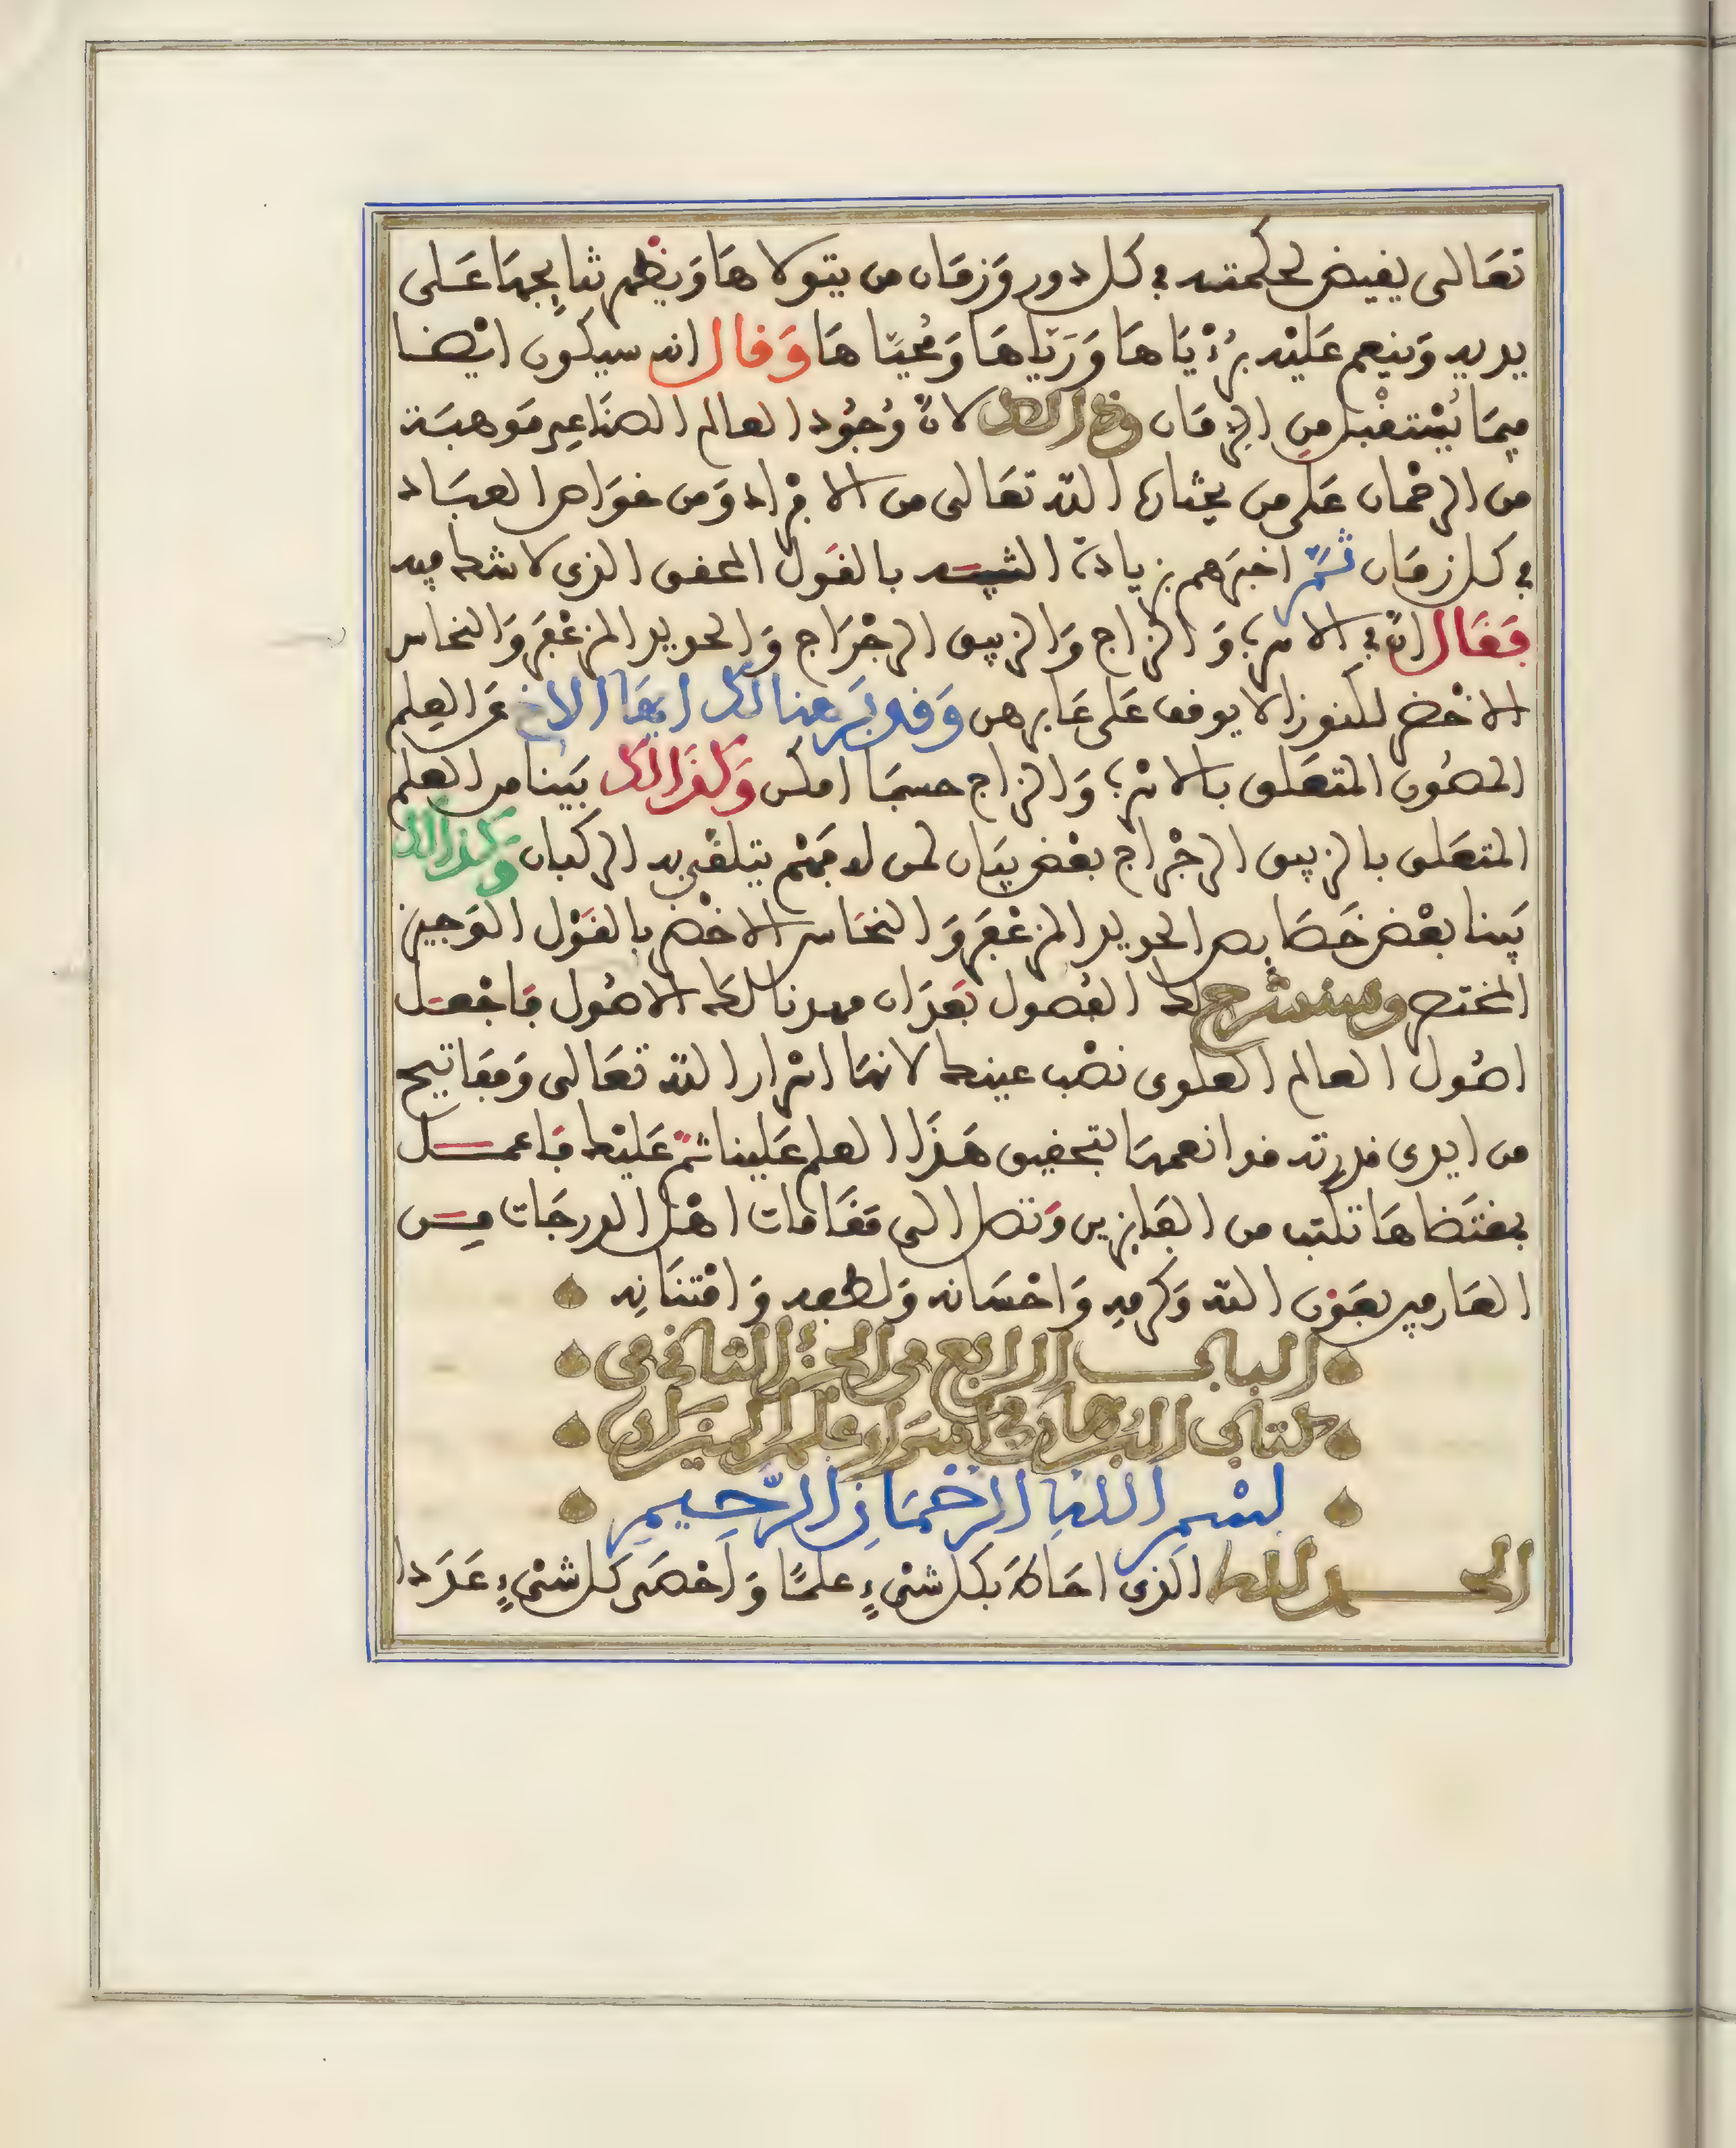 تعالى يفيض لحكمته في كل دور وزمان من يتولاها ويظهر نتايجها على
يديه وينعم عليه برؤياها ورياها ومحياها وقال انه سيكون ايضا
فيما يستقبل من الزمان وذالك لان وجود العالم الصناعي موهبة
من الرحمان على من يختاره الله تعالى من الافراد ومن خواص العباد
في كل زمان ثم اخبرهم بزيادة التنبيه بالقول المحقق الذي لا شك فيه
فقال ان في الاسرب والزاج والزيبق الرجراج والحديد المزعفر والنحاس
الاخضر لكنوزا لا يوقف على غابرهن وقد برهنا لك ايها الاخ عن العلم
المصون المتعلق بالاسرب والزاج حسبما امكن وكذالك بينا من العلم
المتعلق بالزيبق الرجراج بعض بيان لمن له فهم يتلقى به الركبان وكذالك
بينا بعض خصايص الحديد المزعفر والنحاس الاخضر بالقول الوجيز
المختصر وسنشرح لك الفصول بعد ان مهدنا لك الاصول فاجعل
اصول العالم العلوي نصب عينيك لانها اسرار الله تعالى ومفاتيح
من ايدي قدرته قد انعمها بتحقيق هذا العلم علينا ثم عليك فاعمل
بمقتضاها تكتب من الفايزين وتصل الى مقامات اهل الدرجات من
العارفين بعون الله وكرمه واحسانه ولطفه وامتنانه
الباب الرابع من الجزء الثاني من
كتاب البرهان في اسرار علم الميزان
بسم الله الرحمان الرحيم
الحمد لله الذي احاط بكل شيء علما واحصى كل شيء عددا